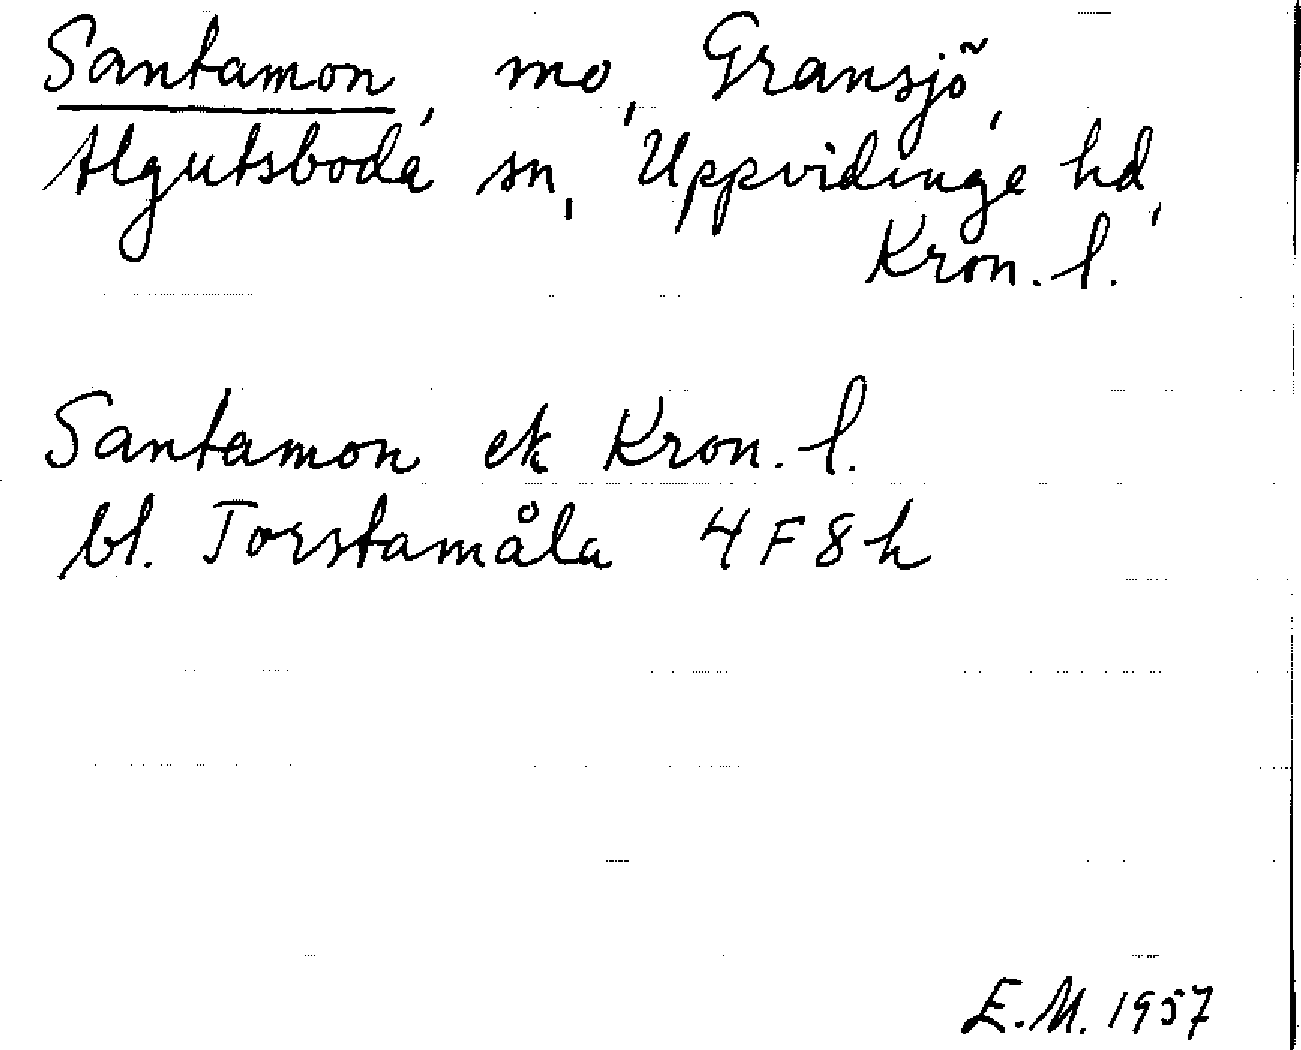 Santamon, mo, Gransjö,
Algutsboda sn, Uppvidinge hd,
Kron. l.
Santamon ek Kron. l.
bl. Torstamåla 4F8h
E.M. 1957